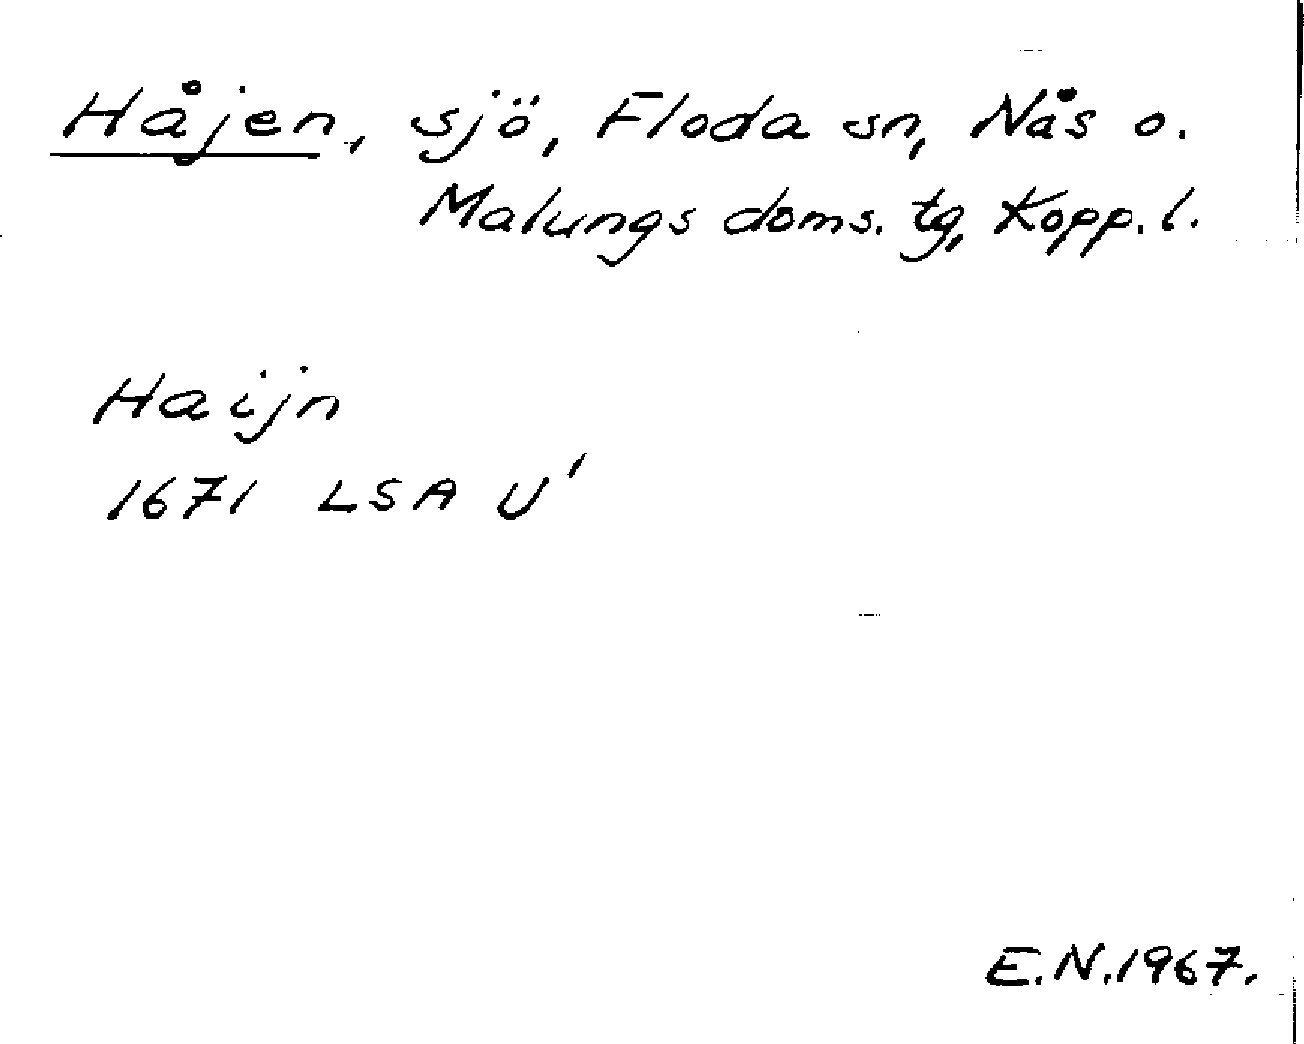 Håjen, sjö, Floda sn, Nås o.
Malungs doms. tg, Kopp. l.
Haijn
1671 LSA U'
E.N.1967.